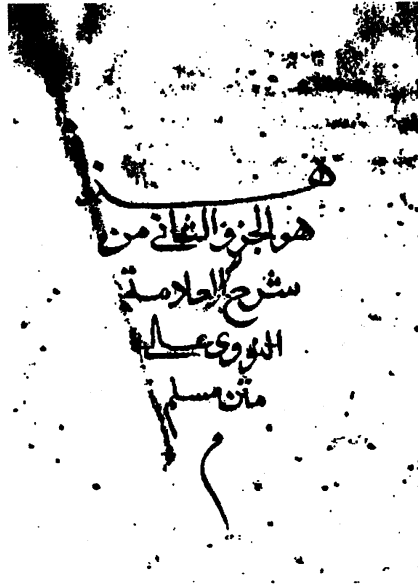 هذ
هو الجزؤ الثاني من
شرح العلامة
النووي على
متن مسلم
م